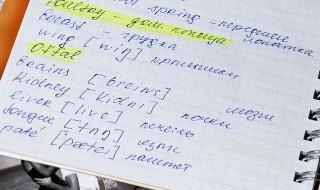 spring - передний
Poultry - дом. птица лопатка
breast - грудка
wing [wiŋ] крылышки
Offal
Brains [breins] мозги
Kidney [kidni] почки
liver [live] печень
tongue [tʌŋ] язык
paté [pætei] паштет